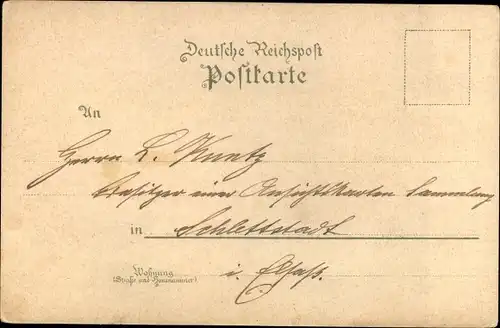 Deutsche Reichspost
Postkarte
An
Herrn L. Kuntz
Besitzer einer Ansichtskarten Sammlung
in Schlettstadt
Wohnung
(Straße und Hausnummer)
i. Elsaß.